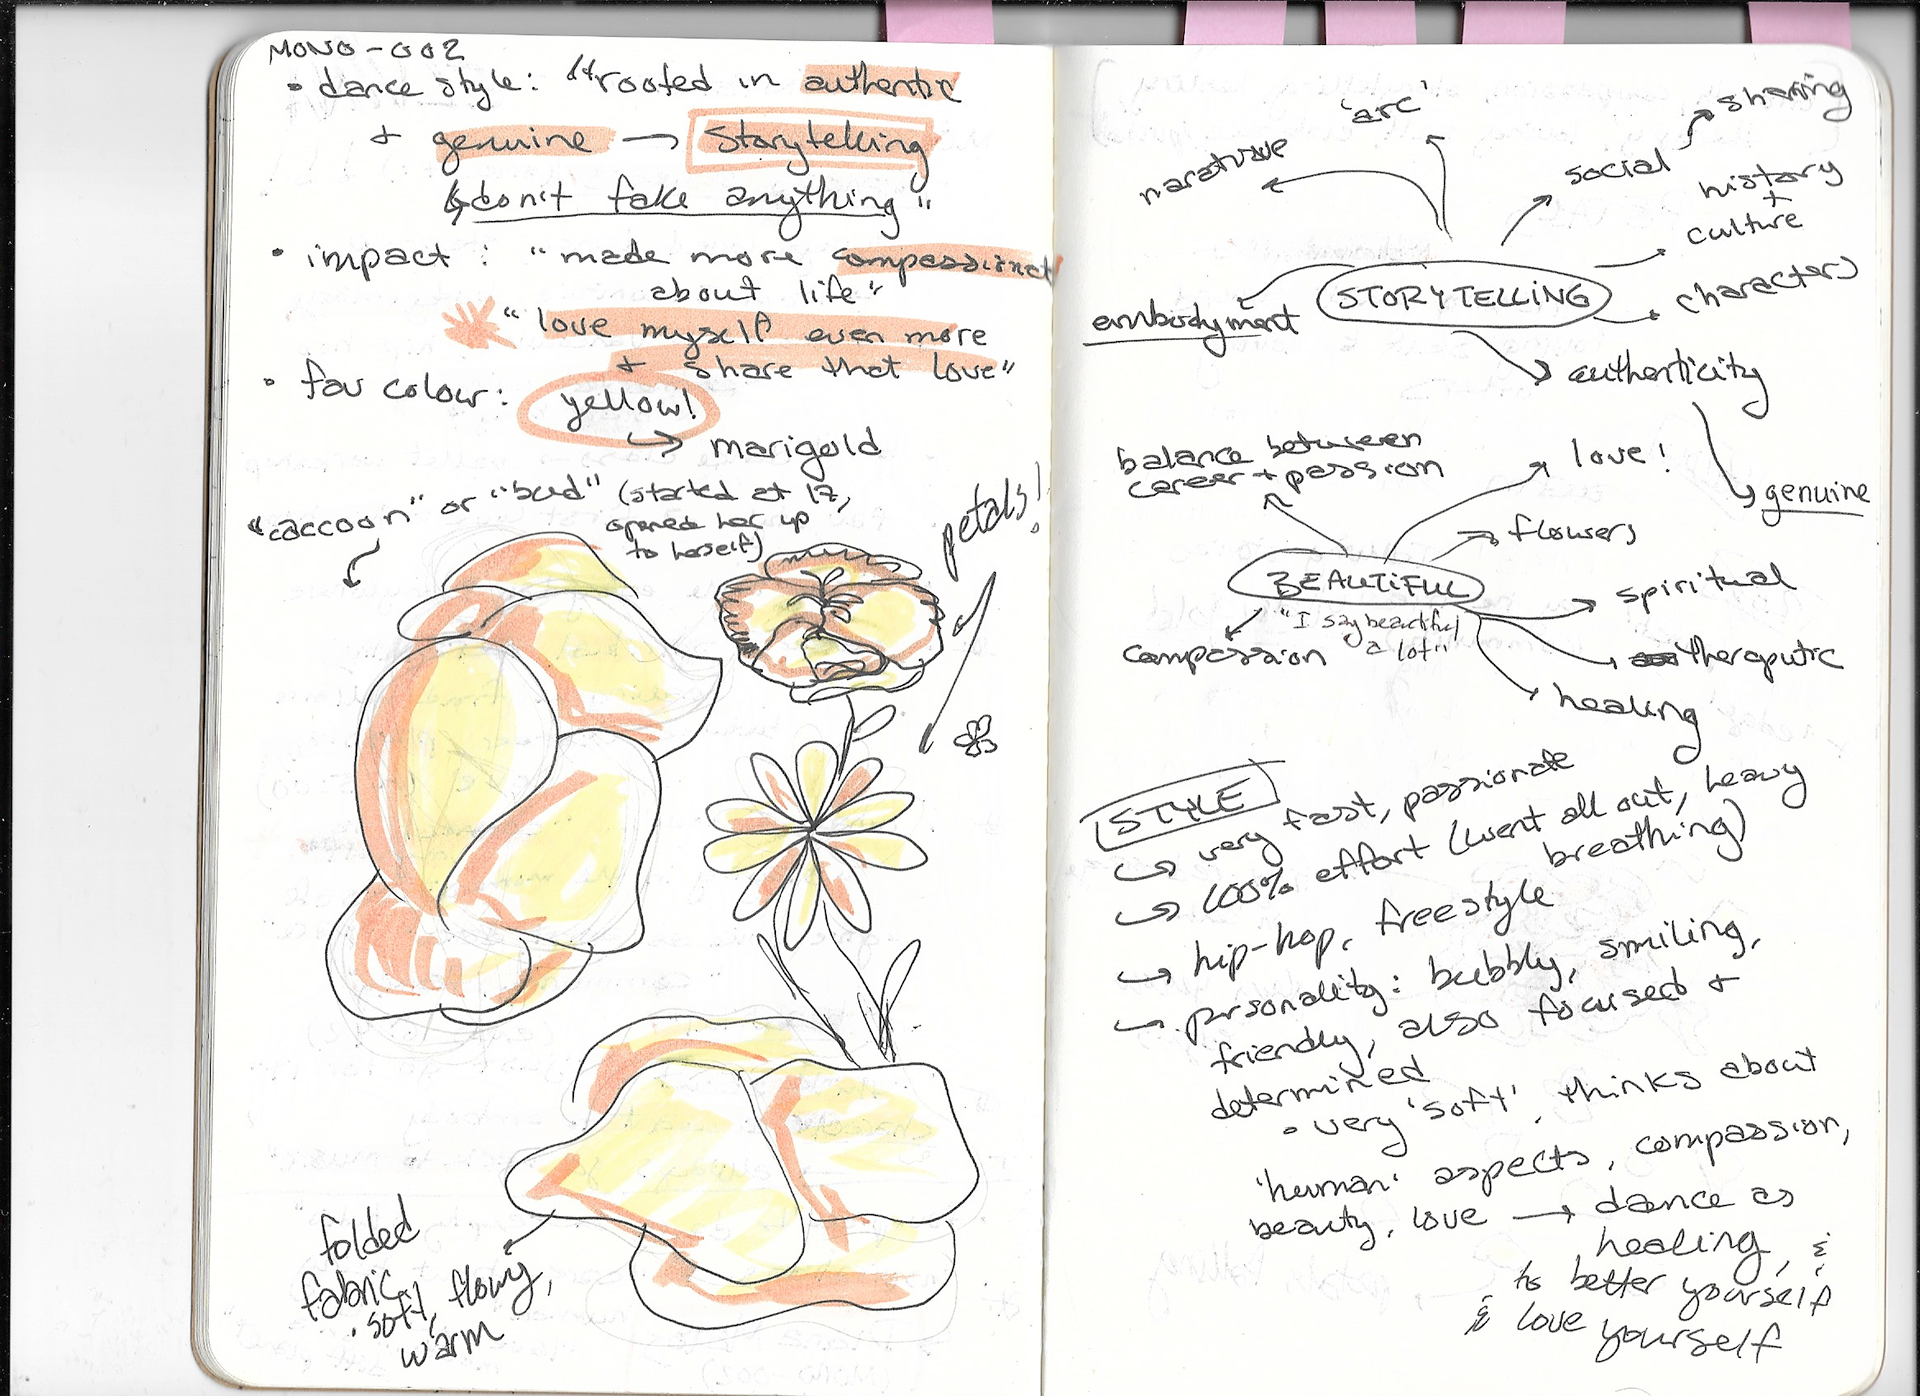 MONO-002
• dance style: "rooted in authentic
+ genuine → storytelling
↳ don't fake anything"
• impact: "made more compassionate
about life"
"love myself even more
+ share that love"
• fav colour: yellow!
→ marigold
"caccoon" or "bud" (started at 17,
opened her up
to herself)
petals!
folded
fabric,
soft, flowy,
warm
'arc'
narative
social → sharing
history
+
culture
STORYTELLING
characters
embodyment
authenticity
genuine
balance between
career + passion
love!
flowers
BEAUTIFUL
"I say beautiful
a lot"
spiritual
theraputic
compassion
healing
STYLE
→ very fast, passionate
→ 100% effort (went all out, heavy
breathing)
→ hip-hop, freestyle
→ personality: bubbly, smiling,
friendly, also focused +
determined
• very 'soft', thinks about
'human' aspects, compassion,
beauty, love → dance as
healing, &
to better yourself
& love yourself